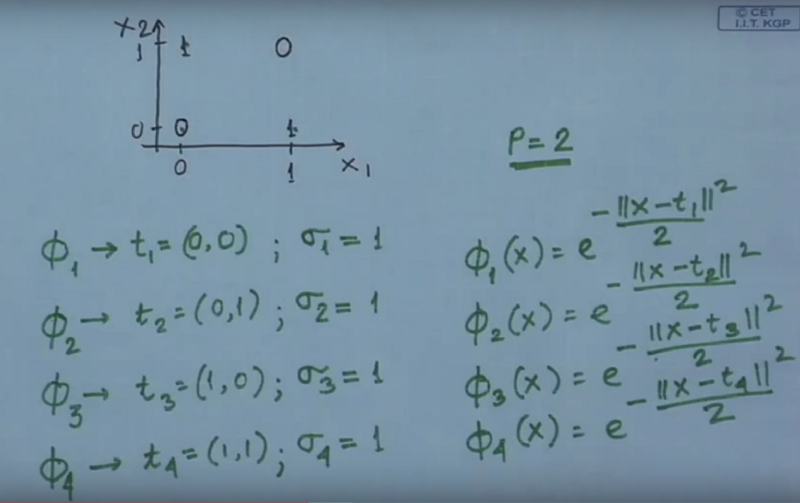 © CET
I.I.T. KGP
x2
1 1 0
0 0 1
0 1 x1
P = 2
ϕ1 → t1 = (0,0) ; σ1 = 1
ϕ2 → t2 = (0,1) ; σ2 = 1
ϕ3 → t3 = (1,0) ; σ3 = 1
ϕ4 → t4 = (1,1) ; σ4 = 1
ϕ1(x) = e^(-||x-t1||²/2)
ϕ2(x) = e^(-||x-t2||²/2)
ϕ3(x) = e^(-||x-t3||²/2)
ϕ4(x) = e^(-||x-t4||²/2)